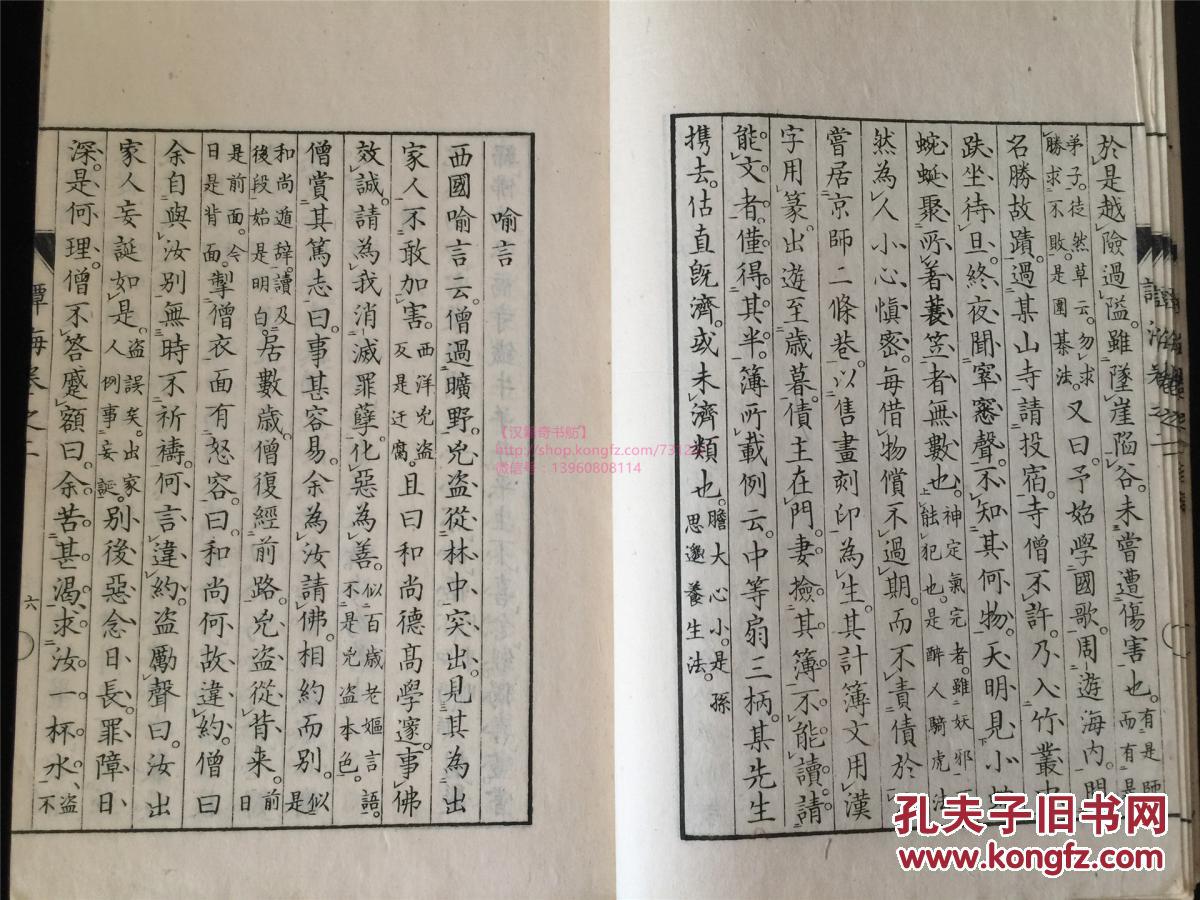 於是越險過隘。雖墜崖陷谷。未嘗遭傷害也。有是師而有是
弟子。徒然草云。勿求勝求不敗。是圍棊法。又曰。予始學國歌。周遊海内。
名勝故蹟。過某山寺請投宿。寺僧不許。乃入竹叢中
趺坐待旦。終夜聞窣窸聲。不知其何物。天明見小
蜿蜒聚。所著蓑笠者無數也。神定氣完者。雖妖邪不能犯也。是醉人騎虎法
然為人小心愼密。每借物償不過期。而不責債於
嘗居京師二條巷。以售畫刻印為生。其計簿文用漢
字用篆。出遊至歲暮。債主在門。妻撿其簿。不能讀。請
能文者。僅得其半。簿所載例云。中等扇三柄。某先生
携去。估直既濟。或未濟類也。膽大心小。是孫思邈養生法。
譚海卷之二
喻言
西國喻言云。僧過曠野。兇盜從林中突出。見其為出
家人。不敢加害。西洋兇盜反是迂腐。且曰。和尚德高學邃。事佛
效誠。請為我消滅罪孽。化惡為善。似百歳老嫗言語。不是兇盜本色。
僧賞其篤志曰。事甚容易。余為汝請佛。相約而別。似是
和尚遁辞。讀及後段。始是明白。居數歳。僧復經前路。兇盜從昔来。前日
是前面。今日是背面。掣僧衣。面有怒容。曰。和尚何故違約。僧曰
余自與汝別。無時不祈禱。何言違約。盜勵聲曰。汝出
家人妄誕如是。盜誤矣。出家人例事妄誕。別後惡念日長。罪障日
深。是何理。僧不答。蹙額曰。余苦甚渴。求汝一杯水。盜不
譚海卷之二
六
【汉籍奇书舫】
https://shop.kongfz.com/7312
微信号：13960808114
孔夫子旧书网
www.kongfz.com